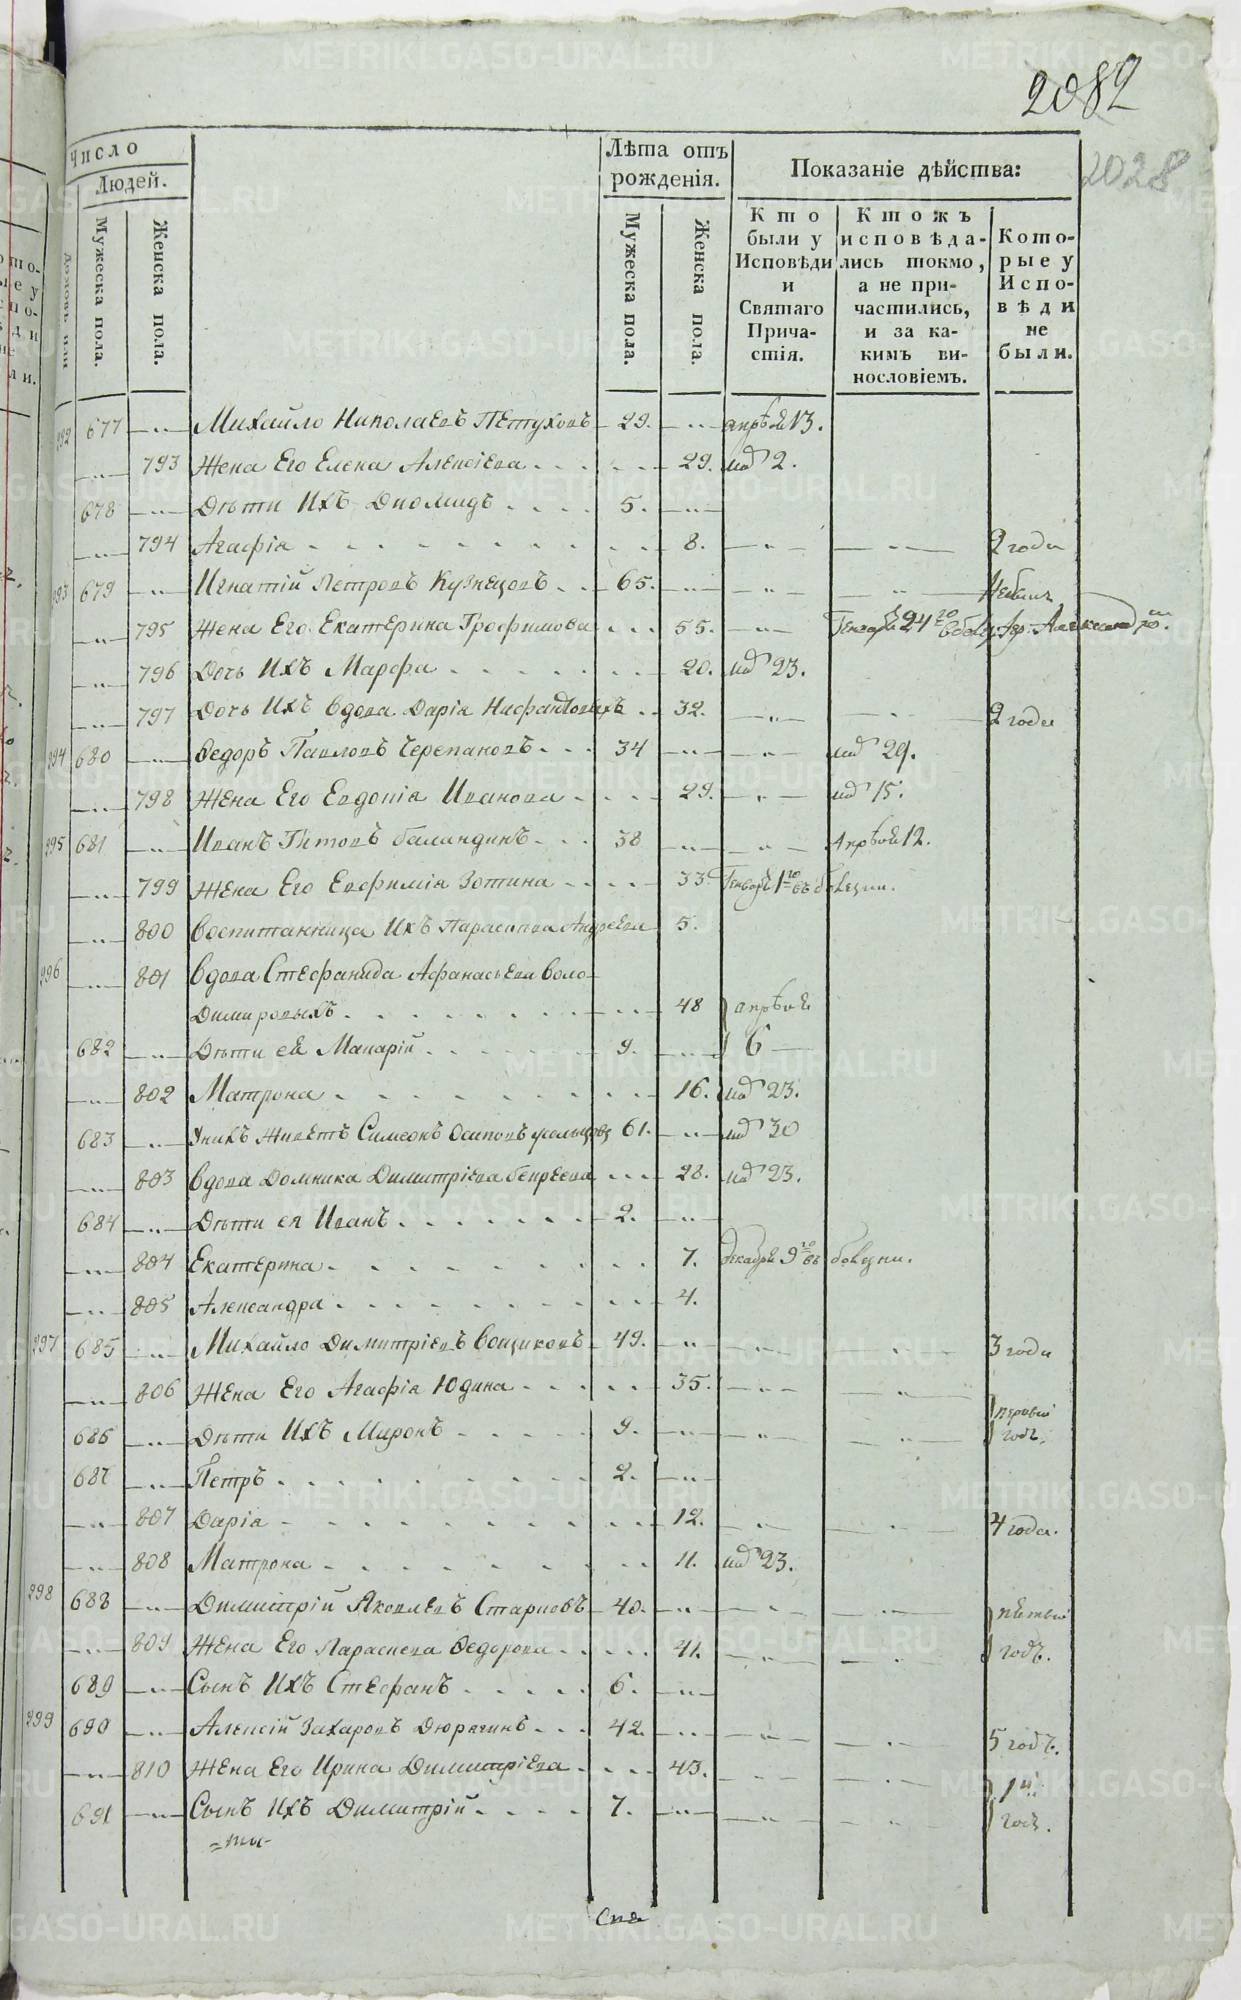 2082
2028
Число
Людей.
Мужеска пола.
Женска пола.
Лѣта отъ рожденія.
Мужеска пола.
Женска пола.
Показаніе дѣйства:
Кто были у Исповѣди и Святаго Причастія.
Ктожъ исповѣдались токмо, а не причастились, и за какимъ винословіемъ.
Которые у Исповѣди не были.
292 677 Михайло Николаевъ Пѣтуховъ 29. апрѣля 13.
793 Жена Его Елена Алексіева 29. 2.
678 Дѣти Ихъ Диомидъ 5.
794 Агафія 8. 2 года
293 679 Игнатій Петровъ Кузнецовъ 65.
795 Жена Его Екатерина Трофимова 55. Генваря 24го
796 Дочь Ихъ Марфа 20. 23.
797 Дочь Ихъ вдова Дарія 32. 2 года
294 680 Ѳедоръ Павловъ Черепановъ 34 29.
798 Жена Его Евдокія Иванова 29. 15.
295 681 Иванъ Титовъ Баландинъ 38 Апрѣля 12.
799 Жена Его Евфимія Зотина 33 Генваря 1го въ болезни.
800 Воспитанница Ихъ Параскева Андреева 5.
296 801 Вдова Стефанида Афанасьева Воло-
димировыхъ 48 апрѣля
682 Дѣти ея Макарій 9. 6
802 Матрона 16. 23.
683 У нихъ Живетъ Симеонъ Осиповъ 61. 30
803 Вдова Домника Димитріева 28. 23.
684 Дѣти ея Иванъ 2.
804 Екатерина 7. Декабря 9го въ болезни.
805 Александра 4.
297 685 Михайло Димитріевъ Вощиковъ 49. 3 года
806 Жена Его Агафія Юдина 35.
686 Дѣти Ихъ Миронъ 9. первый годъ.
687 Петръ 2.
807 Дарія 12. 4 года.
808 Матрона 11. 23.
298 688 Димитрій Яковлевъ Старковъ 40. пятый
809 Жена Его Параскева Ѳедорова 41. годъ.
689 Сынъ Ихъ Стефанъ 6.
299 690 Алексій Захаровъ Дюрягинъ 42. 5 годъ.
810 Жена Его Ирина Димитріева 43. 1й
691 Сынъ Ихъ Димитрій 7. годъ.
METRIKI.GASO-URAL.RU